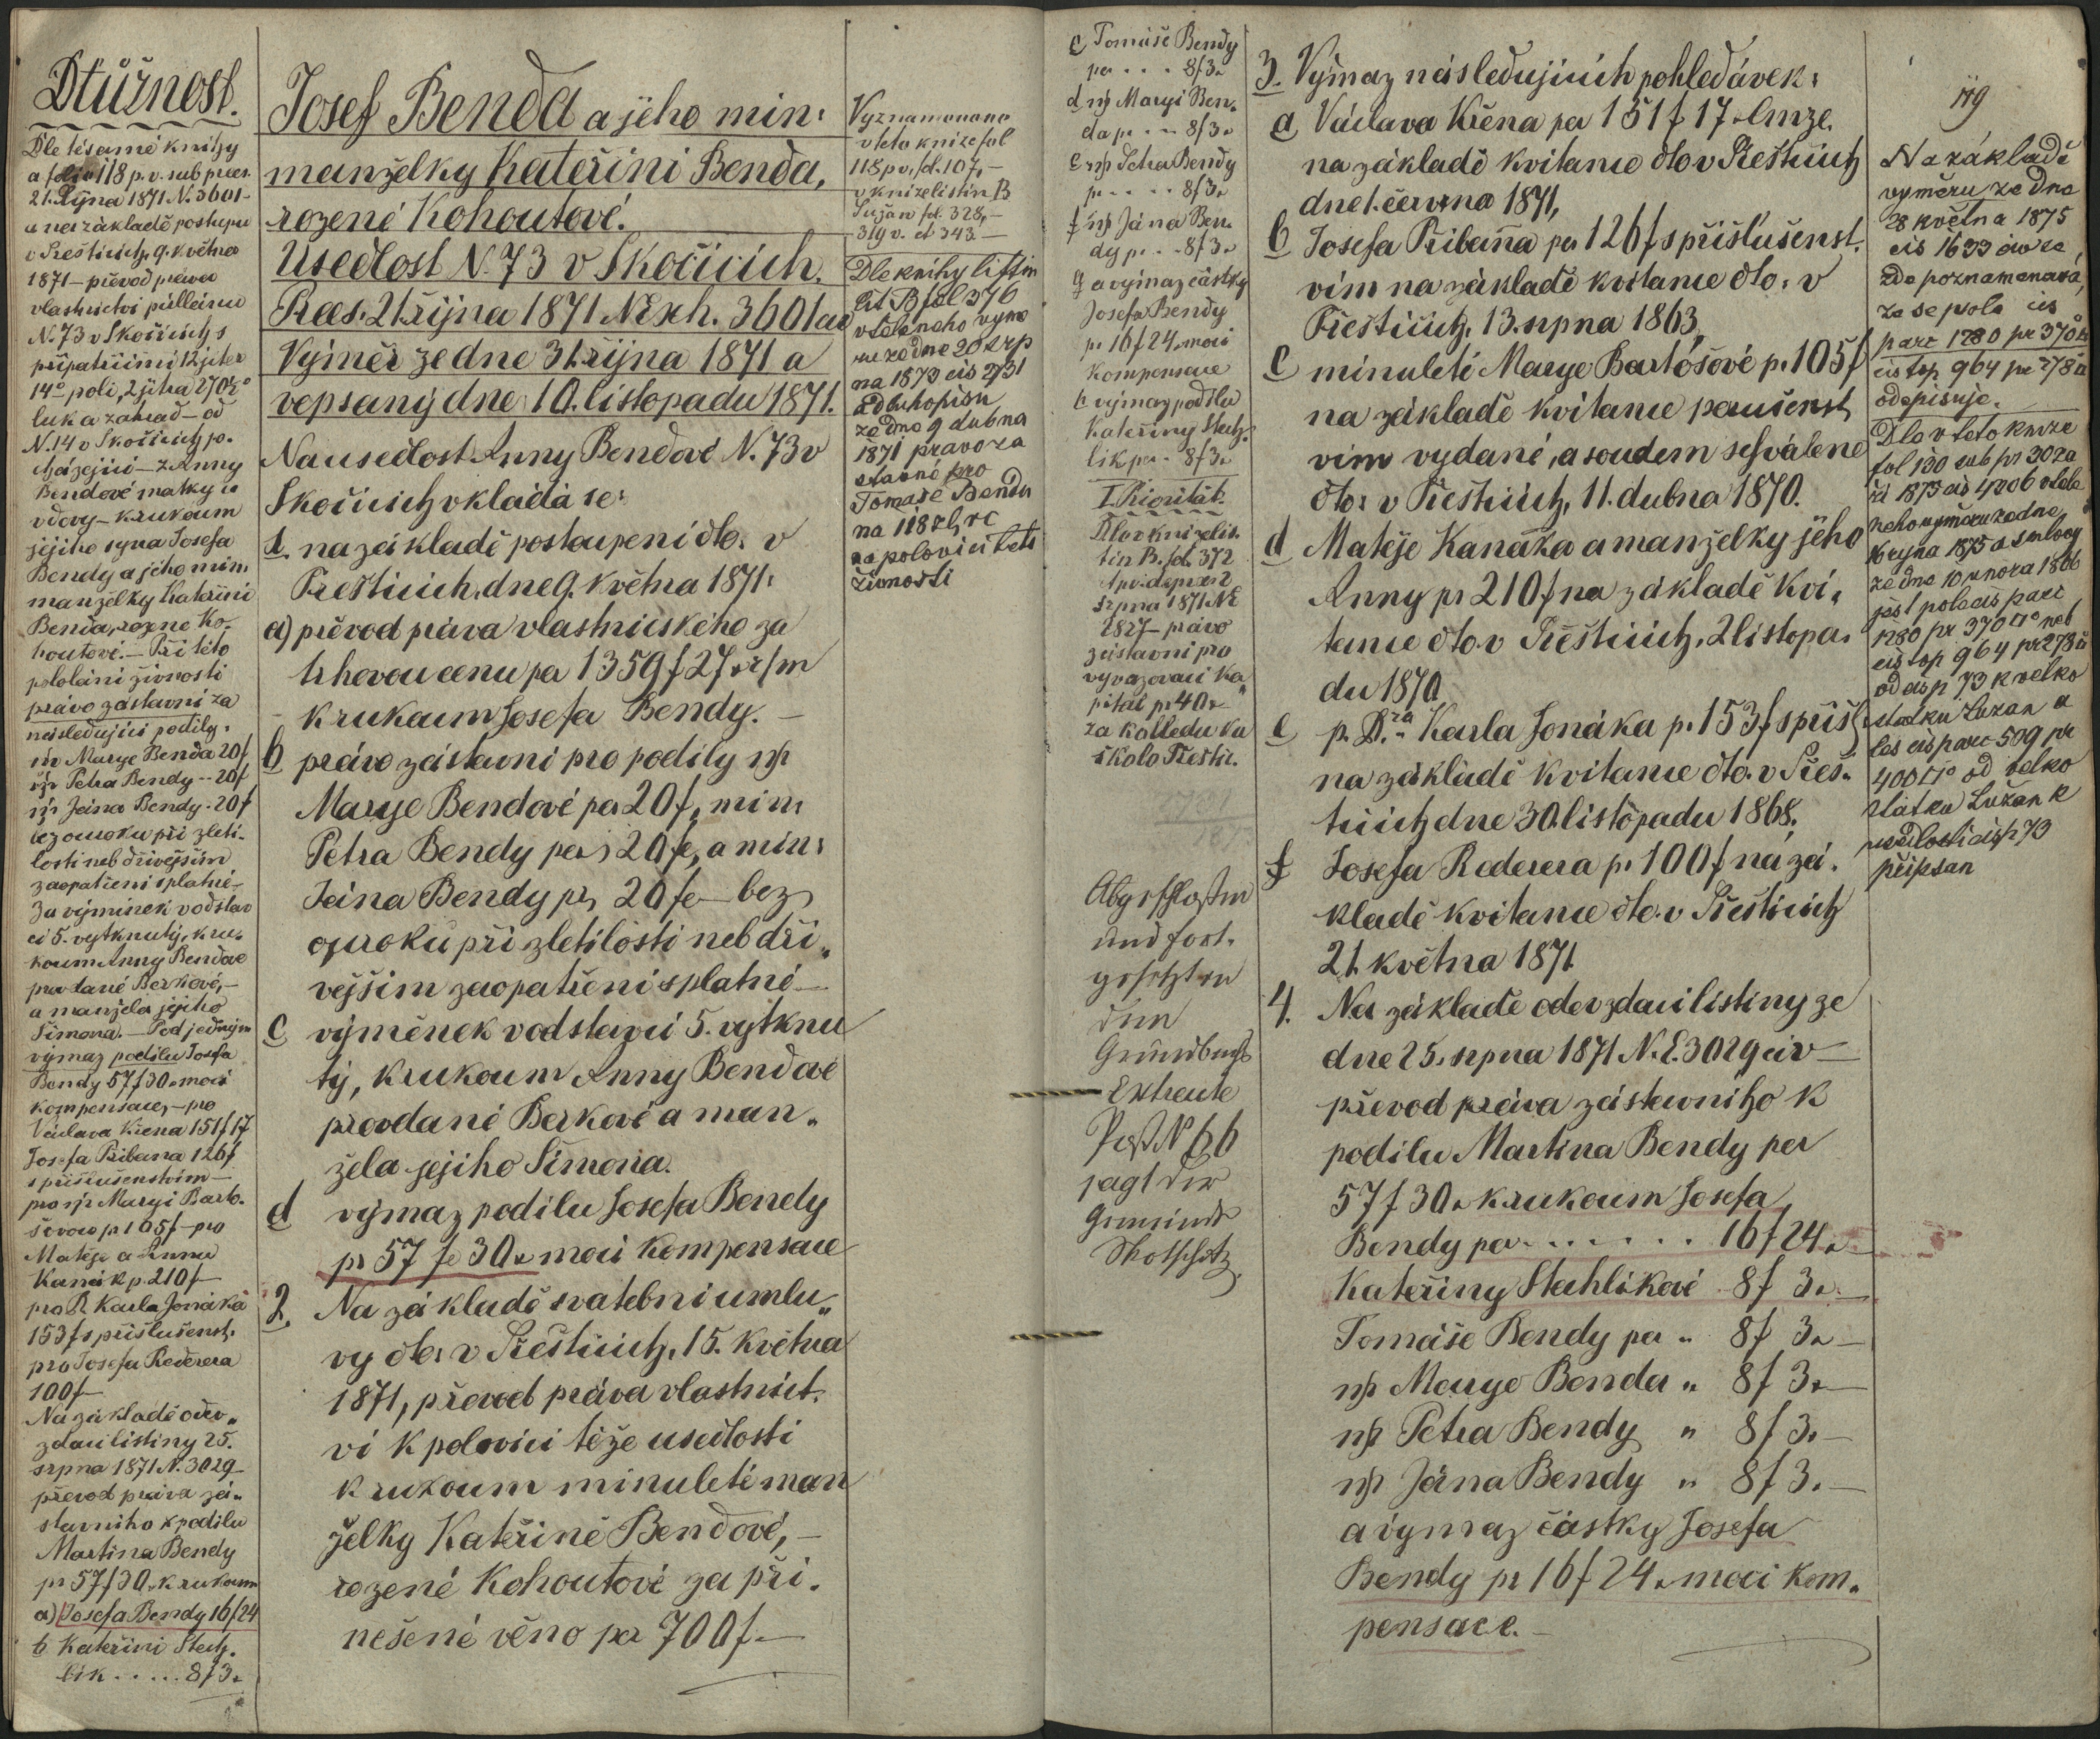 Dlužnost.
Dle tésamé knihy
a folio 118 p. v. sub praes.
21. Října 1871 N. 3601 -
a na základě postupu
v Přešticích, 9. května
1871 - převod práva
vlastnictví půllánu
N. 73 v Skočicích s
připatřícími 12 jiter
14° polí, 2 jitra 270½°
luk a zahrad - od
N. 14 v Skočicích po-
cházející - z Anny
Bendové matky a
vdovy - k rukoum
jejího syna Josefa
Bendy a jeho min.
manželky Kateřini
Benda, rozené Ko-
houtové. - Při této
pololání živnosti
právo zástavní za
následující podíly:
nl. Marye Benda 20 f
nl. Petra Bendy -- 20 f
nl. Jána Bendy - 20 f
bez ouroku při zleti-
losti neb dřívějším
zaopatření splatné -
Za výminek v odstav
ci 5. vytknutý, k ru-
koum Anny Bendové
provdané Berkové, -
a manžela jejího
Šimona. - Pod jedným
výmaz podílu Josefa
Bendy 57 f 30 x mocí
kompensace, - pro
Václava Křena 151 f 17
Josefa Pribana 126 f
s příslušenstvím -
pro nl. Maryi Barto-
šovou pr 105 f - pro
Matěje a Annu
Kanák p. 210 f -
pro D. Karla Jonáka
153 f s příslušenst.
pro Josefa Rederera
100 f -
Na základě odev„
zdací listiny 25.
srpna 1871 N. 3029 -
převod práva zá„
stavního k podílu
Martina Bendy
pr 57 f 30 x k rukoum
a) Josefa Bendy 16 f 24
b Kateřini Steh-
lik ..... 8 f 3 x
Josef Benda a jeho min:
manželky Kateřini Benda,
rozené Kohoutové.
Usedlost N. 73 v Skočicích.
Praes. 21 října 1871 N. Exh. 3601 civ
Výměr ze dne 31. října 1871 a
vepsaný dne 10. listopadu 1871.
Na usedlost Anny Bendové N. 73 v
Skočicích vkládá se:
1. na základě postoupení dto. v
Přešticích, dne 9. května 1871:
a) převod práva vlastnického za
trhovou cenu per 1359 f 27 x r/m
k rukoum Josefa Bendy. -
b právo zástavní pro podíly nl.
Marye Bendové per 20 f, min:
Petra Bendy per 20 f, a min:
Jána Bendy pr 20 f - bez
ouroku při zletilosti neb dří„
vějším zaopatření splatné -
c výměnek v odstavci 5. vytknu
tý, k rukoum Anny Bendové
provdané Berkové a man„
žela jejího Šimona.
d výmaz podílu Josefa Bendy
pr 57 f 30 x mocí kompensace
2. Na základě svatební umlu„
vy dto. v Přešticích, 15. května
1871, převod práva vlastnict.
ví k polovici téže usedlosti
k rukoum minuleté man
želky Kateřině Bendové, -
rozené Kohoutové za při.
nešené věno per 700 f -
Vyznamenáno
v této knize fol
118 p v, fol. 107, -
v knize listin B
Lužan fol. 328, -
319 v. et 343. -
Dle knihy listin
Lit. B fol 376
vtěleného výmě
ru ze dne 20 srp
na 1873 čis 2731
a dluhopisu
ze dne 9 dubna
1871 právo zá
stavné pro
Tomáše Bendu
na 118 zl, rc
na polovici této
živnosti
c Tomáše Bendy
per . . . 8 f 3 x
d nl. Maryi Ben-
da pr . . . 8 f 3 x
e nl. Petra Bendy
pr . . . . 8 f 3 x
f nl. Jána Ben-
dy pr . . 8 f 3 x
g a výmaz částky
Josefa Bendy
pr 16 f 24 x mocí
kompensace
b výmaz podílu
Kateřiny Steh-
lik per . 8 f 3 x
I. Priorität.
Dle knize lis-
tin B. fol. 372
srpna 1871 NE
2827 - právo
zástavní pro
vyvazovací ka„
pitál pr 40 x
za koledu ku
škole Přeštic.
Abgeschlossen
und fort-
gesetzt in
dem
Grundbuchs
Extracte
Post N 66
sagt der
Gemeinde
Skotschitz.
3. Výmaz následujících pohledávek:
a Václava Křena per 151 f 17 x lmze.
na základě kvitance dto v Přešticích
dne 1. června 1871,
b Josefa Pribana per 126 f s příslušenst.
vím na základě kvitance dto. v
Přešticích, 13. srpna 1863,
c minuleti Marye Bartošové p. 105 f
na základě kvitance poručenst
vím vydané, a soudem schválené
dto: v Přešticích, 11. dubna 1870.
d Matěje Kanáka a manželky jeho
Anny pr 210 f na základě kvi„
tance dto. v Přešticích, 2 listopa„
du 1870
e p. Dra Karla Jonáka p. 153 f s přísl.
na základě kvitance dto. v Přeš„
ticích dne 30. listopadu 1868.
f Josefa Rederera p. 100 f na zá„
kladě kvitance dto. v Přešticích
21. května 1871
4. Na základě odevzdací listiny ze
dne 25. srpna 1871 N. E. 3029 civ -
převod práva zástavního k
podílu Martina Bendy per
57 f 30 x k rukoum Josefa
Bendy per . . . . . . . 16 f 24 x
Kateřiny Stehlikové 8 f 3 x. -
Tomáše Bendy per „ 8 f 3 x -
nl. Marye Benda „ 8 f 3 x -
nl. Petra Bendy „ 8 f 3 x -
nl. Jána Bendy „ 8 f 3 x -
a výmaz částky Josefa
Bendy pr 16 f 24 x mocí kom„
pensace. -
119
Na základě
výměru ze dne
28 května 1875
čís 1633 civ se
zde poznamenává,
že se pole čís
parc 1280 pr 370□°
čís top 964 pr 278□
odepisuje.
Dle v této knize
fol 130 sub pr 30 zá
ří 1875 čís 4006 vtěle
ného výměru ze dne
16 října 1875 a smlouvy
ze dne 10 února 1866
jest pole čís parc
1280 pr 370□° neb
čís top 964 pr 278□
od čís p 73 k velko
statku Lužan a
les čís parc 509 pr
400□° od velko
statku Lužan k
usedlosti čísp 73
připsan